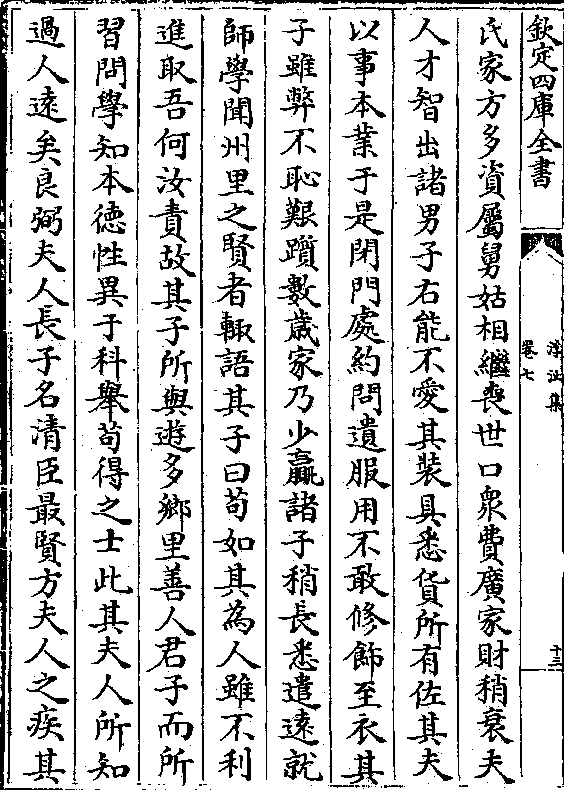 欽定四庫全書
浮沚集
卷七
十三
氏家方多資屬舅姑相繼喪世口衆費廣家財稍衰夫
人才智出諸男子右能不愛其裝具悉貨所有佐其夫
以事本業于是閉門處約問遺服用不敢修飾至衣其
子雖弊不恥艱躓數歲家乃少贏諸子稍長悉遣遠就
師學聞州里之賢者輙語其子曰苟如其為人雖不利
進取吾何汝責故其子所與遊多鄉里善人君子而所
習問學知本徳性異于科舉苟得之士此其夫人所知
過人逺矣良弼夫人長子名清臣最賢方夫人之疾其